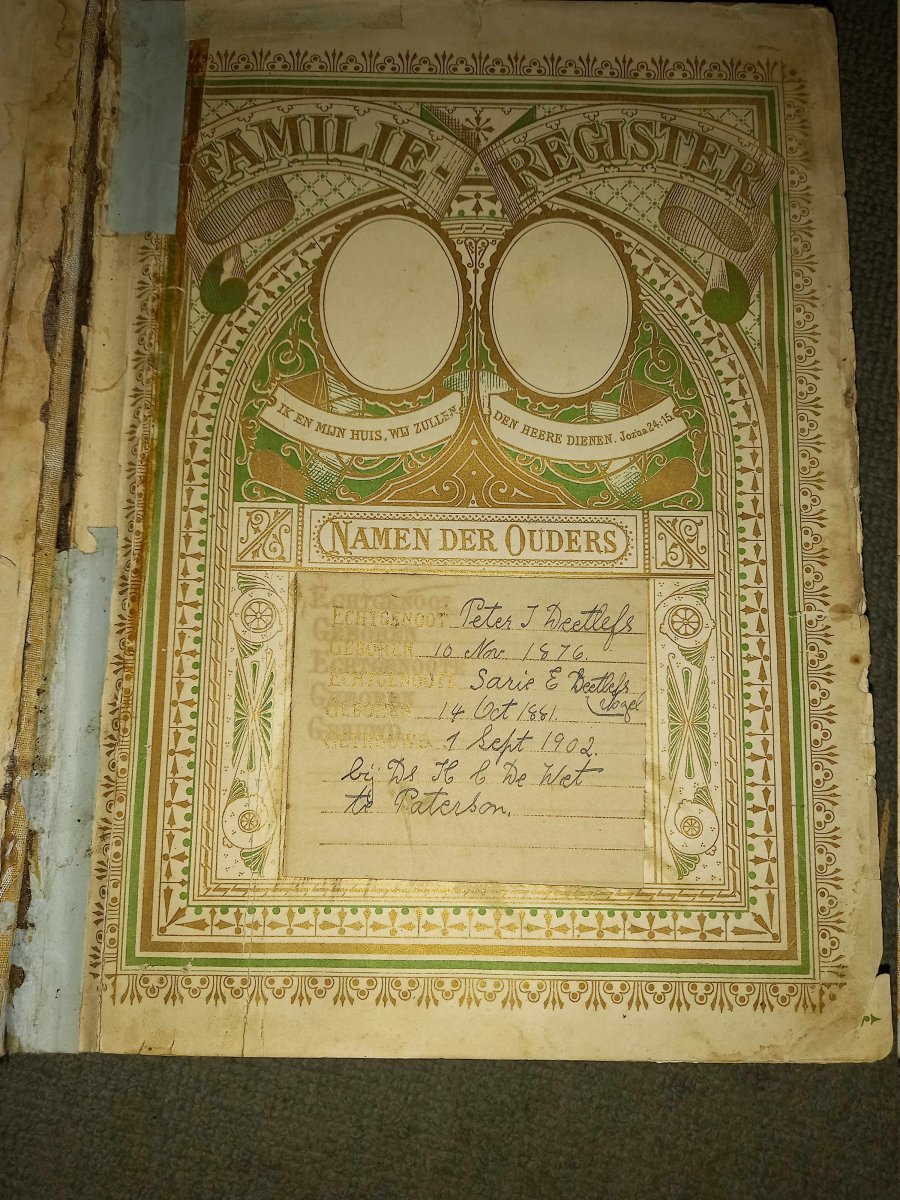 FAMILIE-REGISTER
IK EN MIJN HUIS, WIJ ZULLEN DEN HEERE DIENEN. Jozua.24:15.
NAMEN DER OUDERS
ECHTGENOOT Peter J Deetlefs
GEBOREN 10 Nov 1876.
ECHTGENOOTE Sarie E Deetlefs
GEBOREN 14 Oct 1881.
GETROUWD 1 Sept 1902
bij Ds H C De Wet
te Paterson.